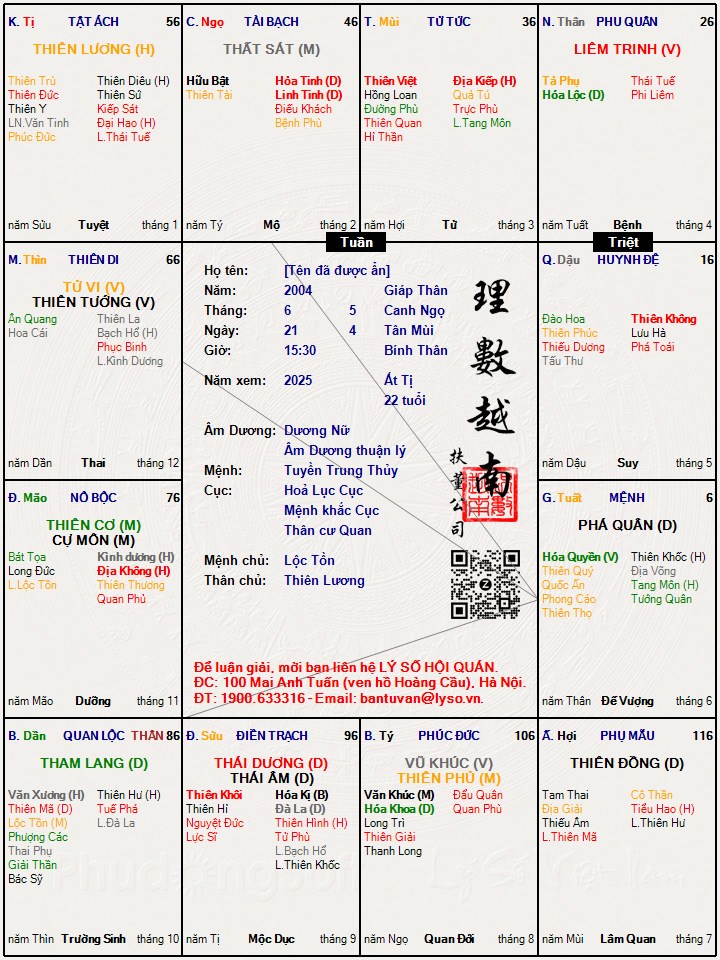 K. Tị TẬT ÁCH 56
THIÊN LƯƠNG (H)
Thiên Trù Thiên Diêu (H)
Thiên Đức Thiên Sứ
Thiên Y Kiếp Sát
LN.Văn Tinh Đại Hao (H)
Phúc Đức L.Thái Tuế
năm Sửu Tuyệt tháng 1
C. Ngọ TÀI BẠCH 46
THẤT SÁT (M)
Hữu Bật Hỏa Tinh (D)
Thiên Tài Linh Tinh (D)
Điếu Khách
Bệnh Phù
năm Tý Mộ tháng 2
T. Mùi TỬ TỨC 36
Thiên Việt Địa Kiếp (H)
Hồng Loan Quả Tú
Đường Phù Trực Phù
Thiên Quan L.Tang Môn
Hỉ Thần
năm Hợi Tử tháng 3
N. Thân PHU QUÂN 26
LIÊM TRINH (V)
Tả Phụ Thái Tuế
Hóa Lộc (D) Phi Liêm
năm Tuất Bệnh tháng 4
Tuần
Triệt
M. Thìn THIÊN DI 66
TỬ VI (V)
THIÊN TƯỚNG (V)
Ân Quang Thiên La
Hoa Cái Bạch Hổ (H)
Phục Binh
L.Kình Dương
năm Dần Thai tháng 12
Họ tên: [Tên đã được ẩn]
Năm: 2004 Giáp Thân
Tháng: 6 5 Canh Ngọ
Ngày: 21 4 Tân Mùi
Giờ: 15:30 Bính Thân
Năm xem: 2025 Ất Tị
22 tuổi
Âm Dương: Dương Nữ
Âm Dương thuận lý
Mệnh: Tuyền Trung Thủy
Cục: Hoả Lục Cục
Mệnh khắc Cục
Thân cư Quan
Mệnh chủ: Lộc Tồn
Thân chủ: Thiên Lương
理數越南
扶董公司
Z
Để luận giải, mời bạn liên hệ LÝ SỐ HỘI QUÁN.
ĐC: 100 Mai Anh Tuấn (ven hồ Hoàng Cầu), Hà Nội.
ĐT: 1900.633316 - Email: bantuvan@lyso.vn.
Q. Dậu HUYNH ĐỆ 16
Đào Hoa Thiên Không
Thiên Phúc Lưu Hà
Thiếu Dương Phá Toái
Tấu Thư
năm Dậu Suy tháng 5
Đ. Mão NÔ BỘC 76
THIÊN CƠ (M)
CỰ MÔN (M)
Bát Tọa Kình dương (H)
Long Đức Địa Không (H)
L.Lộc Tồn Thiên Thương
Quan Phủ
năm Mão Dưỡng tháng 11
G. Tuất MỆNH 6
PHÁ QUÂN (D)
Hóa Quyền (V) Thiên Khốc (H)
Thiên Quý Địa Võng
Quốc Ấn Tang Môn (H)
Phong Cáo Tướng Quân
Thiên Thọ
năm Thân Đế Vượng tháng 6
B. Dần QUAN LỘC THÂN 86
THAM LANG (D)
Văn Xương (H) Thiên Hư (H)
Thiên Mã (D) Tuế Phá
Lộc Tồn (M) L.Đà La
Phượng Các
Thai Phụ
Giải Thần
Bác Sỹ
năm Thìn Trường Sinh tháng 10
Đ. Sửu ĐIỀN TRẠCH 96
THÁI DƯƠNG (D)
THÁI ÂM (D)
Thiên Khôi Hóa Kị (B)
Thiên Hỉ Đà La (D)
Nguyệt Đức Thiên Hình (H)
Lực Sĩ Tử Phù
L.Bạch Hổ
L.Thiên Khốc
năm Tị Mộc Dục tháng 9
B. Tý PHÚC ĐỨC 106
VŨ KHÚC (V)
THIÊN PHỦ (M)
Văn Khúc (M) Đẩu Quân
Hóa Khoa (D) Quan Phù
Long Trì
Thiên Giải
Thanh Long
năm Ngọ Quan Đới tháng 8
Ấ. Hợi PHỤ MẪU 116
THIÊN ĐỒNG (D)
Tam Thai Cô Thần
Địa Giải Tiểu Hao (H)
Thiếu Âm L.Thiên Hư
L.Thiên Mã
năm Mùi Lâm Quan tháng 7